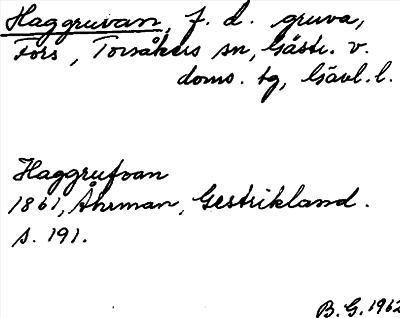 Haggruvan, f. d. gruva,
Fors, Torsåkers sn, Gästr. v.
doms. tg, Gävl. l.
Haggrufvan
1861, Åhrman, Gestrikland.
s. 191.
B. G. 1962